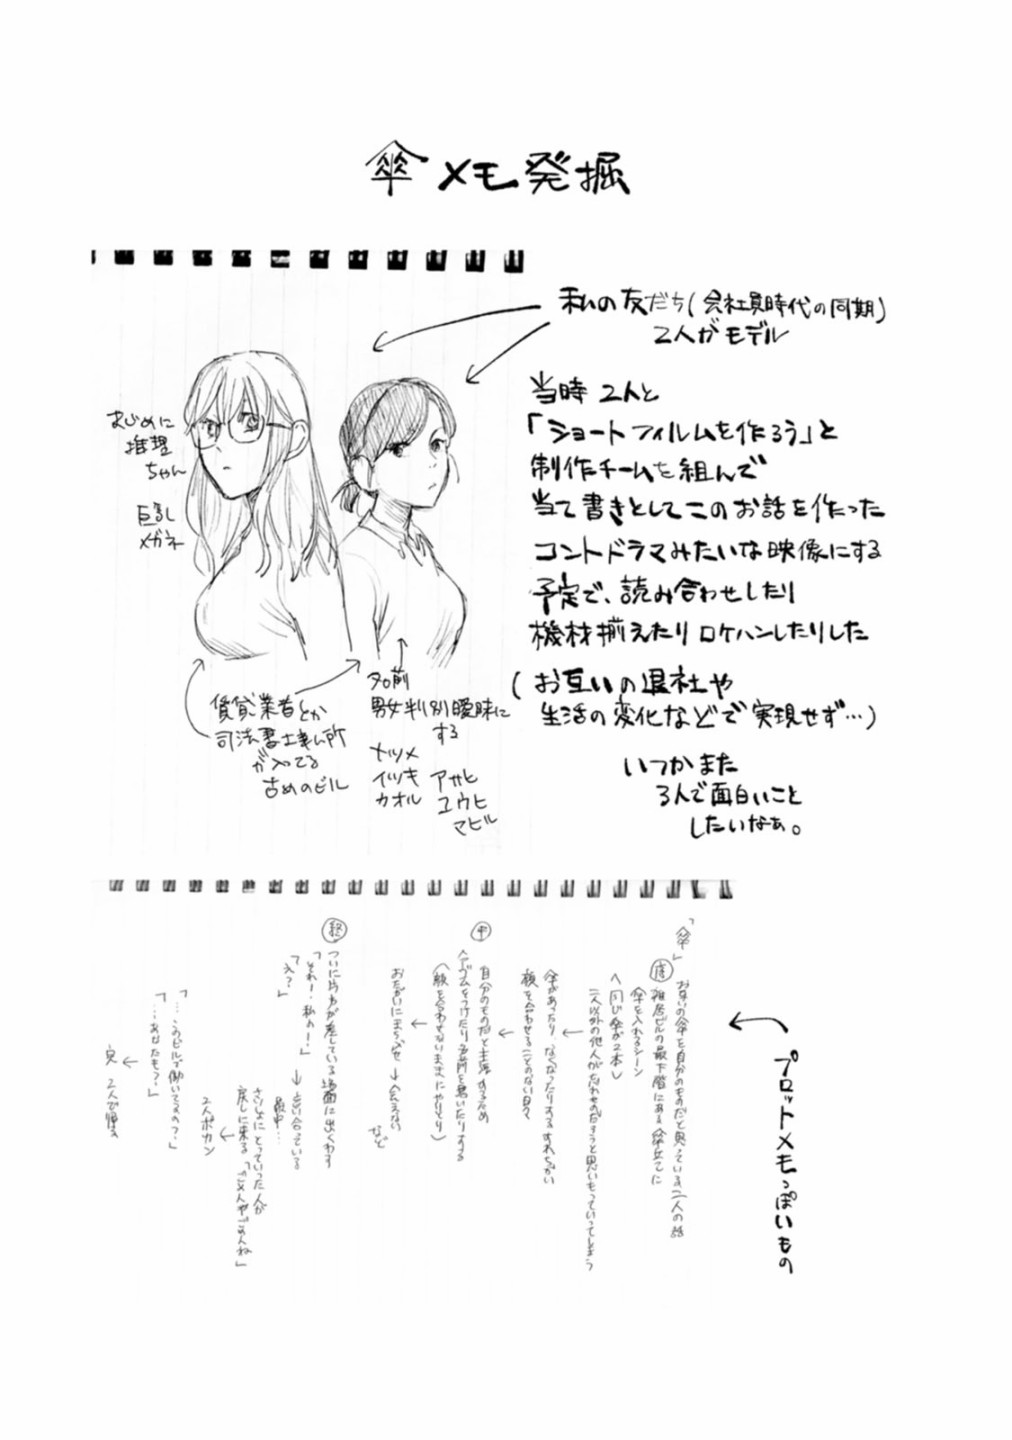 傘メモ発掘
私の友だち(会社員時代の同期)
2人がモデル
当時 2人と
「ショートフィルムを作ろう」と
制作チームを組んで
当て書きとしてこのお話を作った
コントドラマみたいな映像にする
予定で、読み合わせしたり
機材揃えたりロケハンしたりした
(お互いの退社や
生活の変化などで実現せず…)
いつかまた
3人で面白いこと
したいなぁ。
まじめに
推理
ちゃん
巨乳
メガネ
賃貸業者とか
司法書士事ム所
が入ってる
古めのビル
名前
男女判別曖昧に
する
ナツメ
イツキ
カオル
アサヒ
ユウヒ
マヒル
プロットメモっぽいもの
「傘」
序
おなじ傘を自分のものだと思っている二人の話
雑居ビルの最下階にある傘立てに
傘を入れるシーン
〈同じ傘が2本〉
二人以外の他人がだれものだろうと思いもっていってしまう
傘があったり、なくなったりするすれちがい
顔を合わせることのない日々
中
自分のものだと主張するため
ヘアゴムをつけたり名前を書いたりする
(顔を合わせないままにやりとり)
おたがいにまちぶせ→会えない
など
終
ついに片方が差している場面に出くわす
「それー!私のー!」→言い合っている
「え?」
最中…
さいしょにとっていった人が
戻しに来る「ごめんやでごめんね」
2人ポカン
「…このビルで働いてますの?」
「…あなたも?」
完 2人で帰る